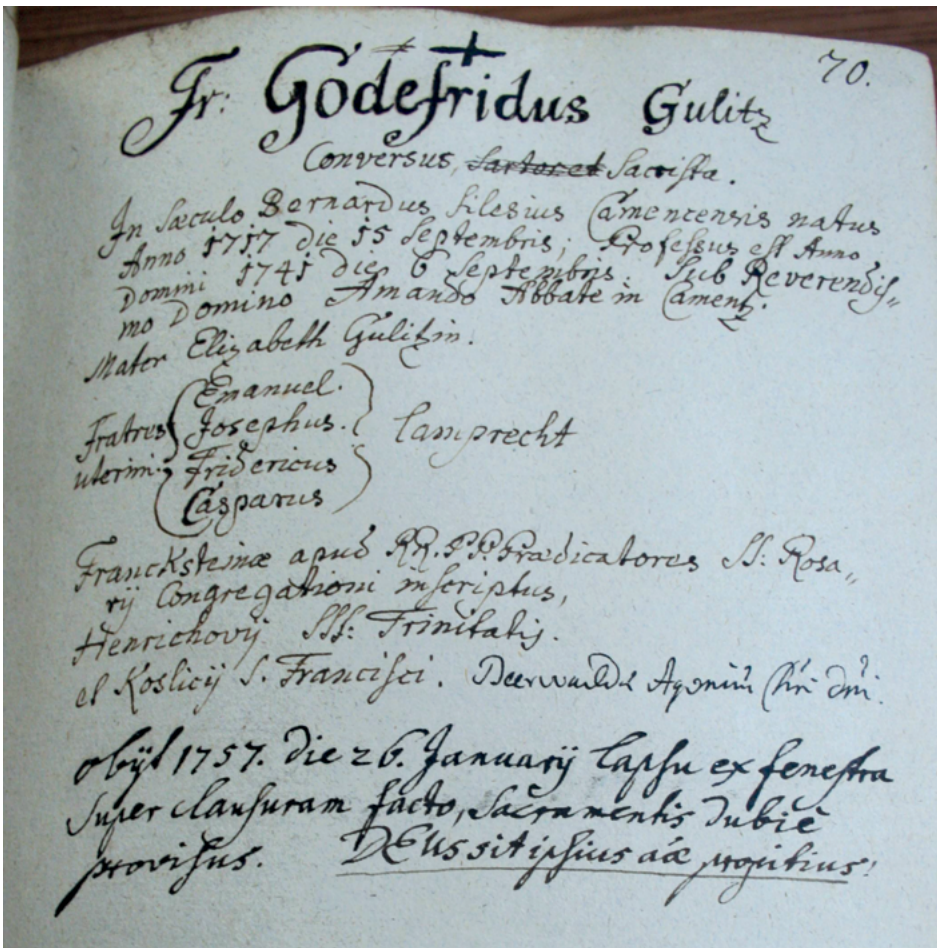 70.
Fr: Godefridus Gulitz
Conversus, Sartor et Sacrista.
In Sæculo Bernardus Silesius Camencensis natus
Anno 1717 die 15 Septembris; Professus est Anno
Domini 1741 die 6 Septembris. Sub Reverendis„
mo Domino Amando Abbate in Camentz.
Mater Elizabeth Gulitzin.
Emanuel.
Fratres Josephus. Lamprecht
uterini: Fridericus
Casparus
Francksteinæ apud RR.PP. Prædicatores SS: Rosa„
rij Congregationi inscriptus,
Henrichovij SSS: Trinitatis.
et Koslicij S. Francisci. Beerwaldæ Agoniæ Chri Dni.
obijt 1757. die 26. Januarij lapsu ex fenestra
super clausuram facto, Sacramentis dubiè
provisus. DEus sit ipsius aæ propitius!